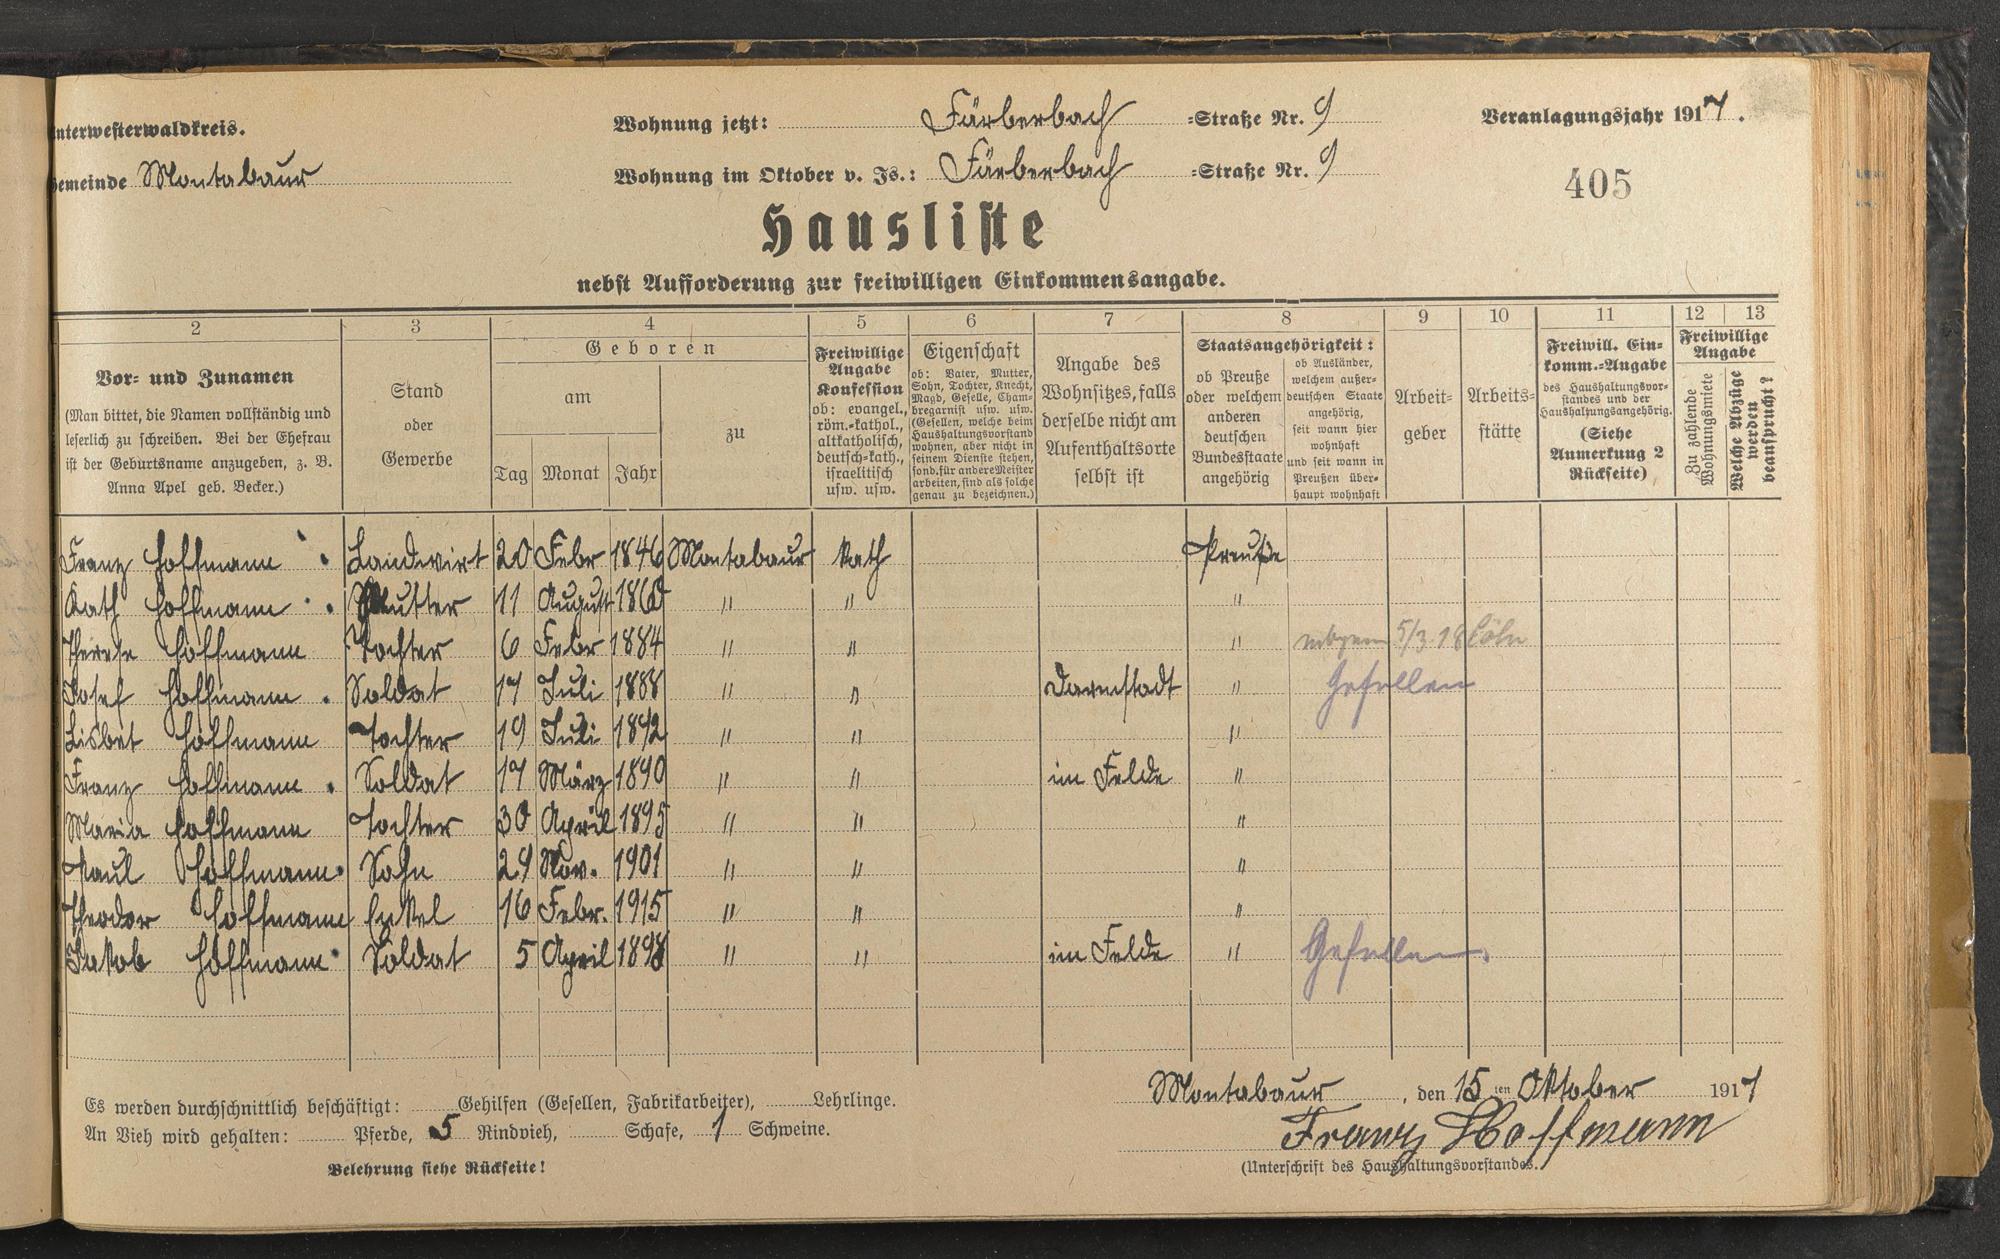 Unterwesterwaldkreis.
Gemeinde Montabaur
Wohnung jetzt: Färberbach =Straße Nr. 9
Wohnung im Oktober v. Js.: Färberbach =Straße Nr. 9
Veranlagungsjahr 1917.
405
Hausliste
nebst Aufforderung zur freiwilligen Einkommensangabe.
2 3 4 5 6 7 8 9 10 11 12 13
Vor- und Zunamen
(Man bittet, die Namen vollständig und
leserlich zu schreiben. Bei der Ehefrau
ist der Geburtsname anzugeben, z. B.
Anna Apel geb. Becker.)
Stand
oder
Gewerbe
Geboren
am
Tag Monat Jahr
zu
Freiwillige
Angabe
Konfession
ob: evangel.,
röm.-kathol.,
altkatholisch,
deutsch-kath.,
israelitisch
usw. usw.
Eigenschaft
ob: Vater, Mutter,
Sohn, Tochter, Knecht,
Magd, Geselle, Cham-
bregarnist usw. usw.
(Gesellen, welche beim
Haushaltungsvorstand
wohnen, aber nicht in
seinem Dienste stehen,
sond. für andere Meister
arbeiten, sind als solche
genau zu bezeichnen.)
Angabe des
Wohnsitzes, falls
derselbe nicht am
Aufenthaltsorte
selbst ist
Staatsangehörigkeit:
ob Preuße
oder welchem
anderen
deutschen
Bundesstaate
angehörig
ob Ausländer,
welchem außer-
deutschen Staate
angehörig,
seit wann hier
wohnhaft
und seit wann in
Preußen über-
haupt wohnhaft
Arbeit-
geber
Arbeits-
stätte
Freiwill. Ein-
komm.-Angabe
des Haushaltungsvor-
standes und der
Haushaltungsangehörig.
(Siehe
Anmerkung 2
Rückseite)
Freiwillige
Angabe
Zu zahlende
Wohnungsmiete
Welche Abzüge
werden
beansprucht?
Franz Hoffmann Landwirt 20 Febr 1846 Montabaur Kath Preuße
Kath Hoffmann Mutter 11 August 1860 " " "
Therese Hoffmann Tochter 6 Febr 1884 " " " 5/3 18 Cöln
Josef Hoffmann Soldat 17 Juli 1888 " " Darmstadt " Gefallen
Lisbet Hoffmann Tochter 19 Juli 1892 " " "
Franz Hoffmann Soldat 17 März 1890 " " im Felde "
Maria Hoffmann Tochter 30 April 1895 " " "
Paul Hoffmann Sohn 29 Nov. 1901 " " "
Theodor Hoffmann Enkel 16 Febr. 1915 " " "
Jakob Hoffmann Soldat 5 April 1898 " " im Felde " Gefallen.
Es werden durchschnittlich beschäftigt: Gehilfen (Gesellen, Fabrikarbeiter), Lehrlinge.
An Vieh wird gehalten: Pferde, 5 Rindvieh, Schafe, 1 Schweine.
Belehrung siehe Rückseite!
Montabaur, den 15ten Oktober 1917
Franz Hoffmann
(Unterschrift des Haushaltungsvorstandes.